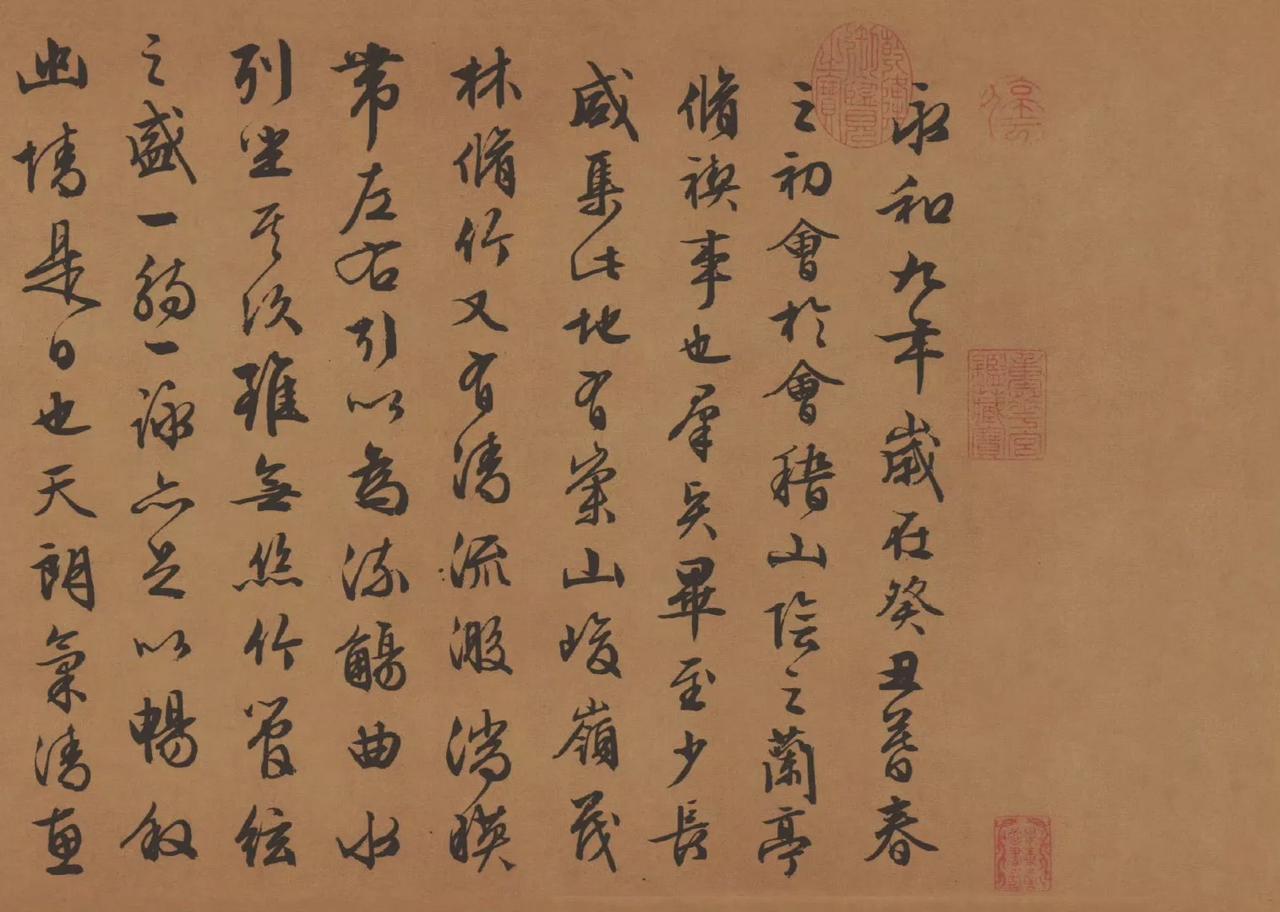 永和九年歲在癸丑暮春
之初會於會稽山陰之蘭亭
脩禊事也羣賢畢至少長
咸集此地有崇山峻嶺茂
林脩竹又有清流激湍暎
帶左右引以為流觴曲水
列坐其次雖無絲竹管絃
之盛一觴一詠亦足以暢敘
幽情是日也天朗氣清惠
乾隆御覽之寶
重華宮鑑藏寶